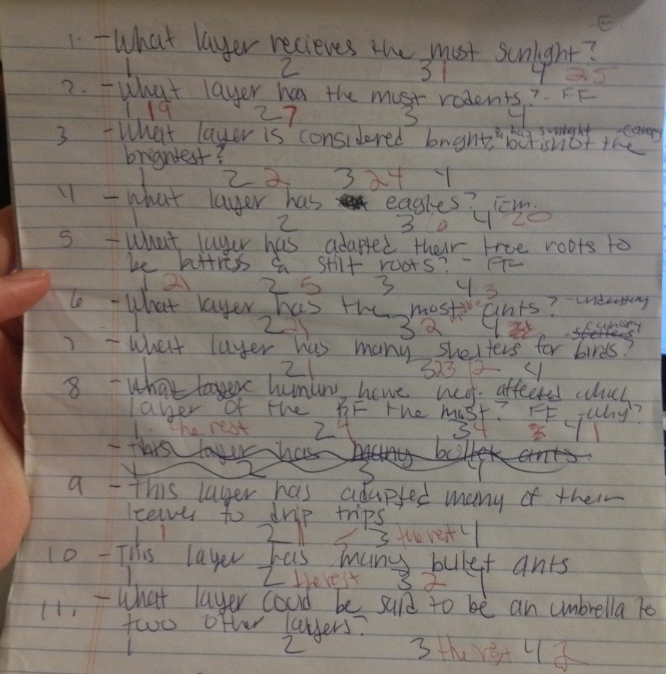 E
1. - What layer recieves the most sunlight?
1 2 3 1 4 25
2. - What layer has the most rodents? - FF
1 19 2 7 3 4
3 - What layer is considered bright, but is not the
brightest?
1 2 2 3 24 4
4 - What layer has eagles? Em.
1 2 3 6 4 20
5 - What layer has adapted their tree roots to
be buttress & stilt roots? - FF
1 21 2 5 3 4 3
6 - What layer has the most ants? - understory
1 2 21 3 2 4
7 - What layer has many shelters for birds?
1 2 1 3 23 2 4
8 - What layer humans have neg. affected which
layer of the RF the most? FF - why?
1. the rest 2 4 3 4 3 4 1
- this layer has many bullet ants
1 2 3 4
9 - This layer has adapted many of their
leaves to drip trips
1 1 2 1 3 the rest 4
10 - This layer has many bullet ants
1 2 the rest 3 2 4
11. - What layer could be said to be an umbrella to
two other layers?
1 2 3 the rest 4 2